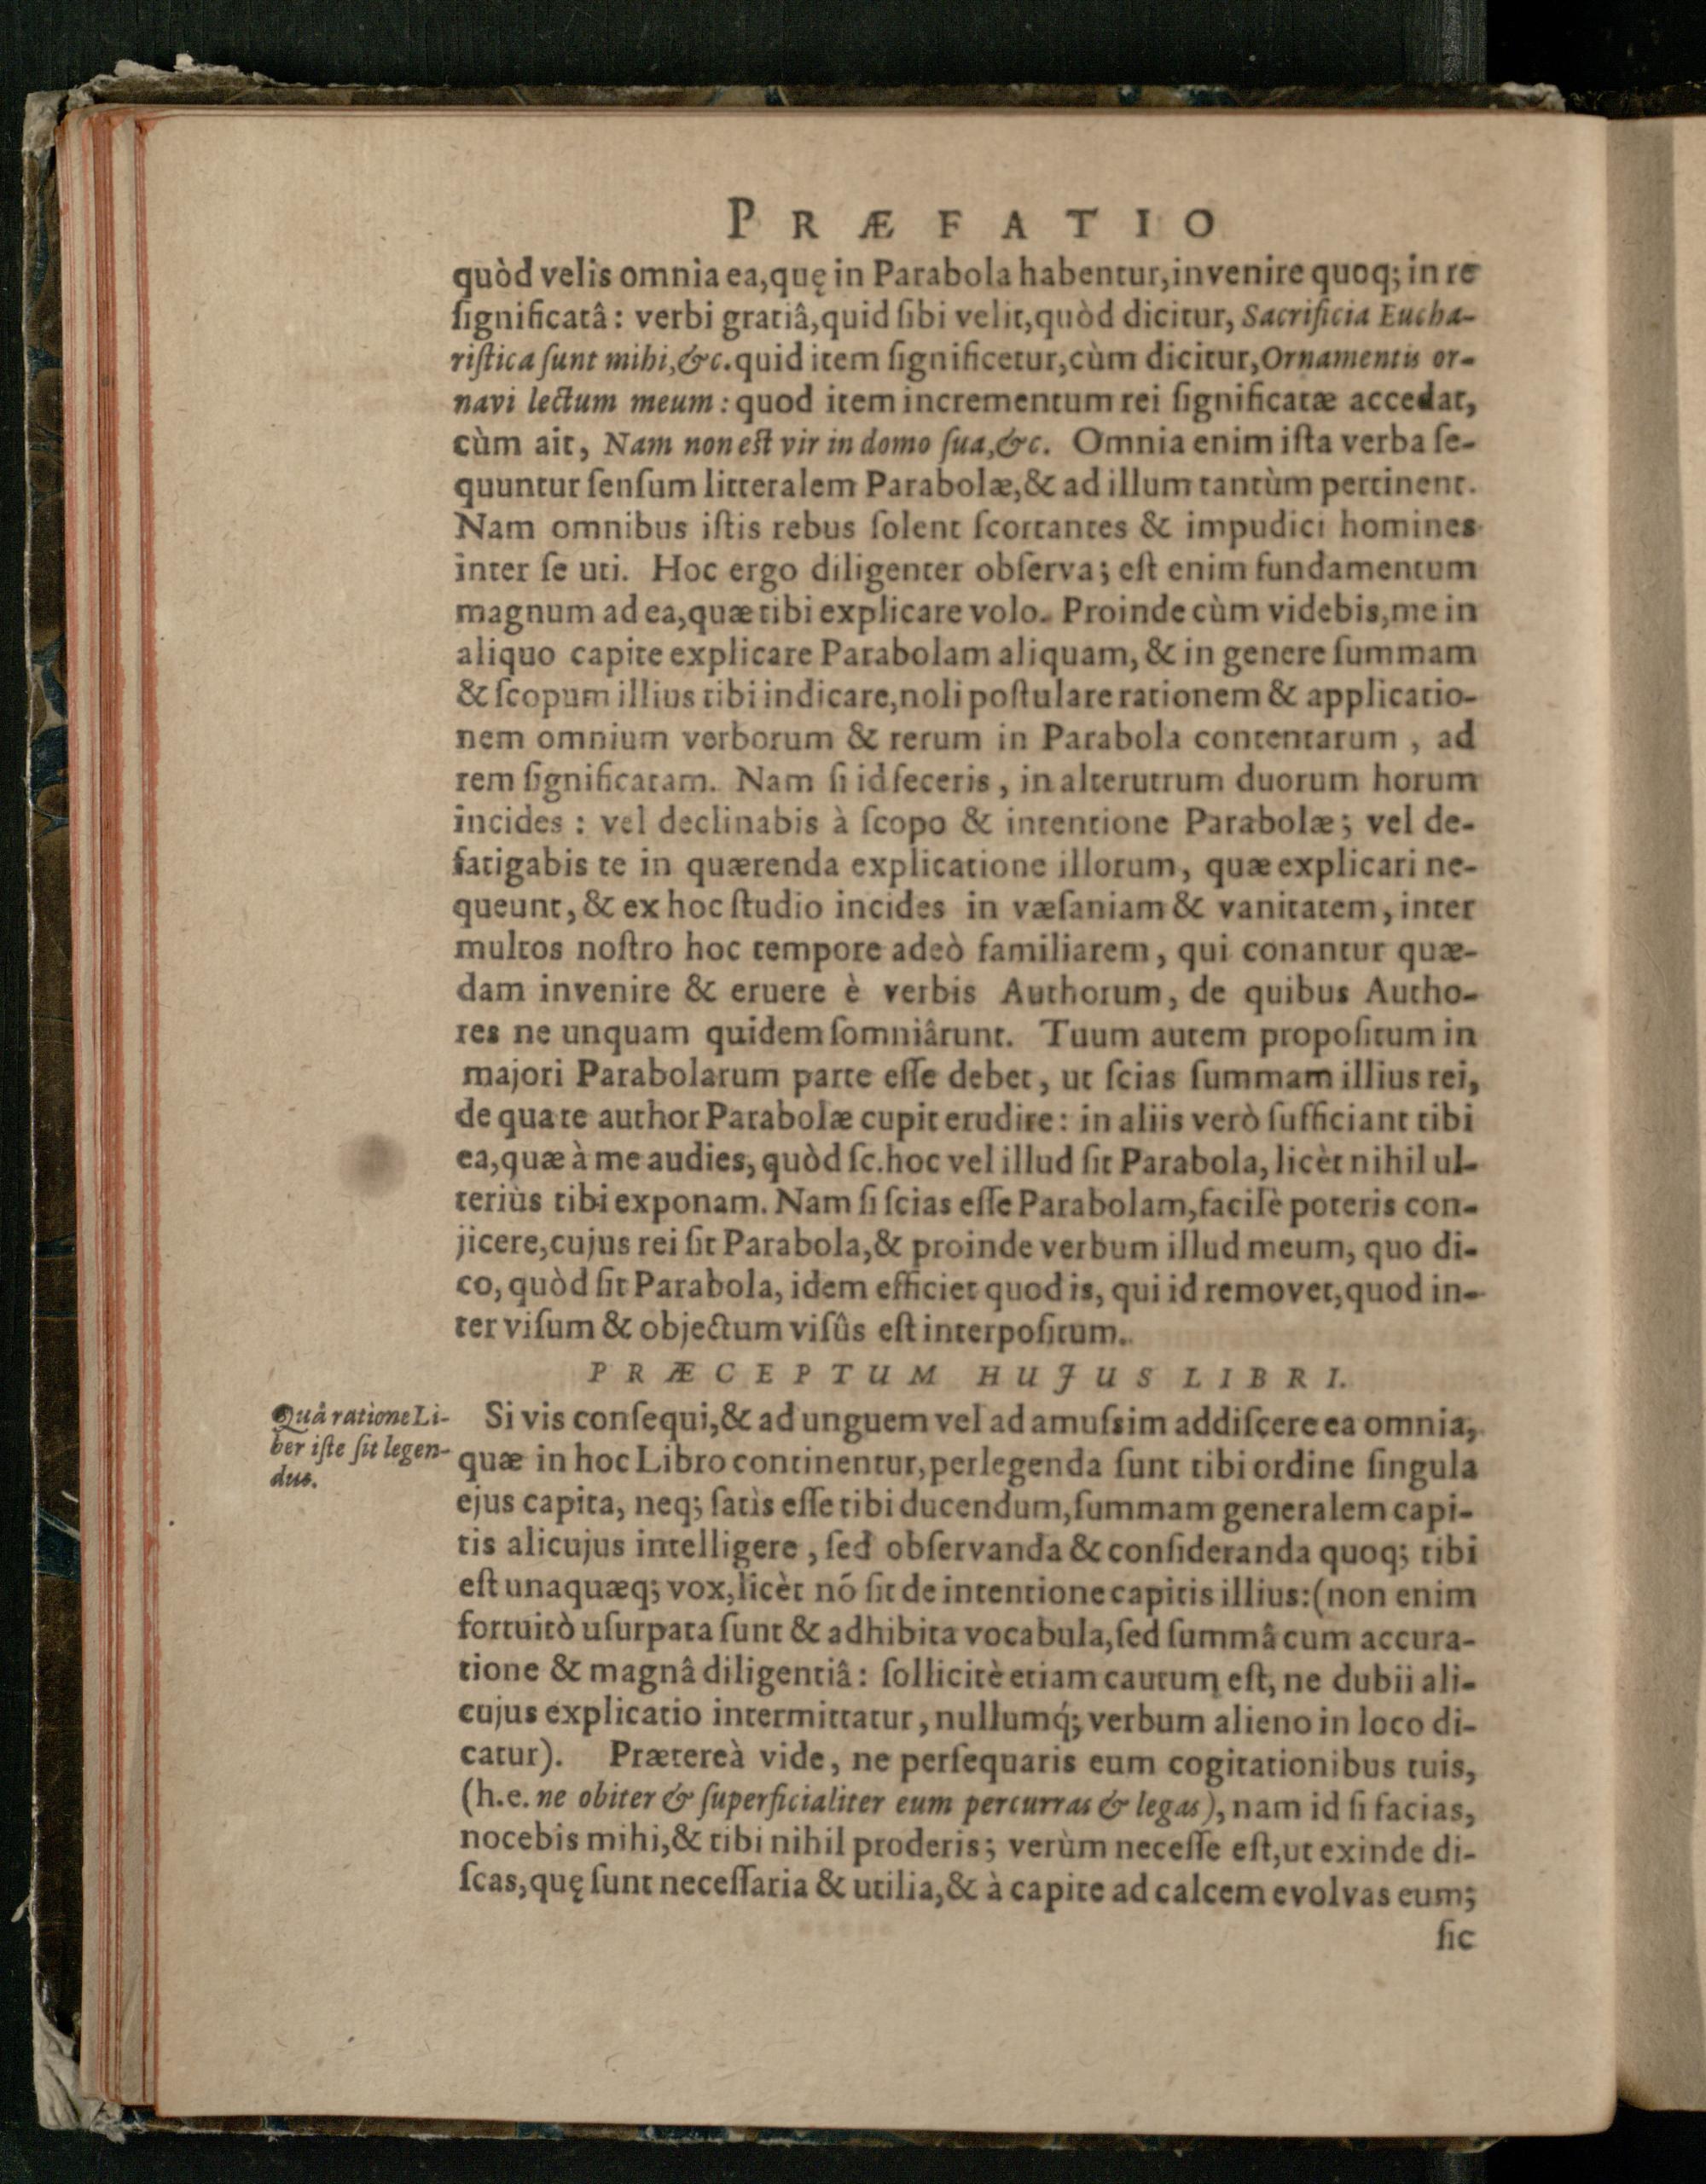 PRÆFATIO
quòd velis omnia ea,quę in Parabola habentur,invenire quoq; in re
ſignificatâ: verbi gratiâ,quid ſibi velit,quòd dicitur, Sacrificia Eucha-
riſtica ſunt mihi,&c.quid item ſignificetur,cùm dicitur,Ornamentis or-
navi lectum meum: quod item incrementum rei ſignificatæ accedat,
cùm ait, Nam non eſt vir in domo ſua,&c. Omnia enim iſta verba ſe-
quuntur ſenſum litteralem Parabolæ,& ad illum tantùm pertinent.
Nam omnibus iſtis rebus ſolent ſcortantes & impudici homines
inter ſe uti. Hoc ergo diligenter obſerva; eſt enim fundamentum
magnum ad ea,quæ tibi explicare volo. Proinde cùm videbis,me in
aliquo capite explicare Parabolam aliquam, & in genere ſummam
& ſcopum illius tibi indicare,noli poſtulare rationem & applicatio-
nem omnium verborum & rerum in Parabola contentarum , ad
rem ſignificatam. Nam ſi id feceris , in alterutrum duorum horum
incides : vel declinabis à ſcopo & intentione Parabolæ; vel de-
fatigabis te in quærenda explicatione illorum, quæ explicari ne-
queunt, & ex hoc ſtudio incides in væſaniam & vanitatem, inter
multos noſtro hoc tempore adeò familiarem, qui conantur quæ-
dam invenire & eruere è verbis Authorum, de quibus Autho-
res ne unquam quidem ſomniârunt. Tuum autem propoſitum in
majori Parabolarum parte eſſe debet, ut ſcias ſummam illius rei,
de qua te author Parabolæ cupit erudire: in aliis verò ſufficiant tibi
ea,quæ à me audies, quòd ſc.hoc vel illud ſit Parabola, licèt nihil ul-
teriùs tibi exponam. Nam ſi ſcias eſſe Parabolam,facilè poteris con-
jicere,cujus rei ſit Parabola,& proinde verbum illud meum, quo di-
co, quòd ſit Parabola, idem efficiet quod is, qui id removet,quod in-
ter viſum & objectum viſûs eſt interpoſitum.
PRÆCEPTUM HUJUS LIBRI.
Quâ ratione Li-
ber iſte ſit legen-
dus.
Si vis conſequi,& ad unguem vel ad amuſsim addiſcere ea omnia,
quæ in hoc Libro continentur,perlegenda ſunt tibi ordine ſingula
ejus capita, neq; ſatìs eſſe tibi ducendum,ſummam generalem capi-
tis alicujus intelligere , ſed obſervanda & conſideranda quoq; tibi
eſt unaquæq; vox,licèt nō ſit de intentione capitis illius:(non enim
fortuitò uſurpata ſunt & adhibita vocabula,ſed ſummâ cum accura-
tione & magnâ diligentiâ: ſollicitè etiam cautum eſt, ne dubii ali-
cujus explicatio intermittatur, nullumq́; verbum alieno in loco di-
catur). Prætereà vide, ne perſequaris eum cogitationibus tuis,
(h.e. ne obiter & ſuperficialiter eum percurras & legas), nam id ſi facias,
nocebis mihi,& tibi nihil proderis; verùm neceſſe eſt,ut exinde di-
ſcas,quę ſunt neceſſaria & utilia,& à capite ad calcem evolvas eum;
ſic